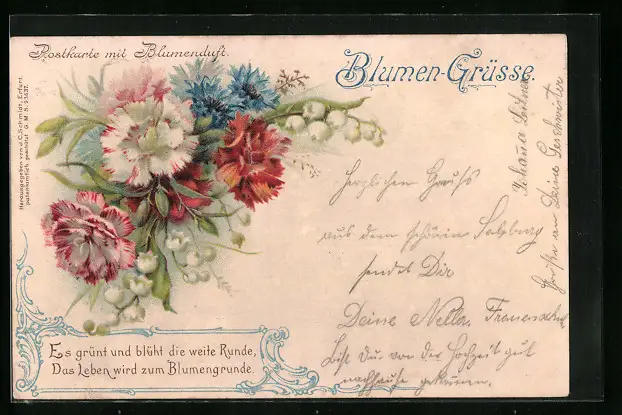 Postkarte mit Blumenduft.
Blumen-Grüsse.
Herausgegeben von J.C. Schmidt, Erfurt.
patentamtlich geschützt G. M. S.
Herzlichen Gruß
aus dem schönen Salzburg
sendet Dir
Deine Nella.
Bist Du von der Hochzeit gut
nachhause gekommen.
Grüße an Deine Geschwister
Es grünt und blüht die weite Runde,
Das Leben wird zum Blumengrunde.